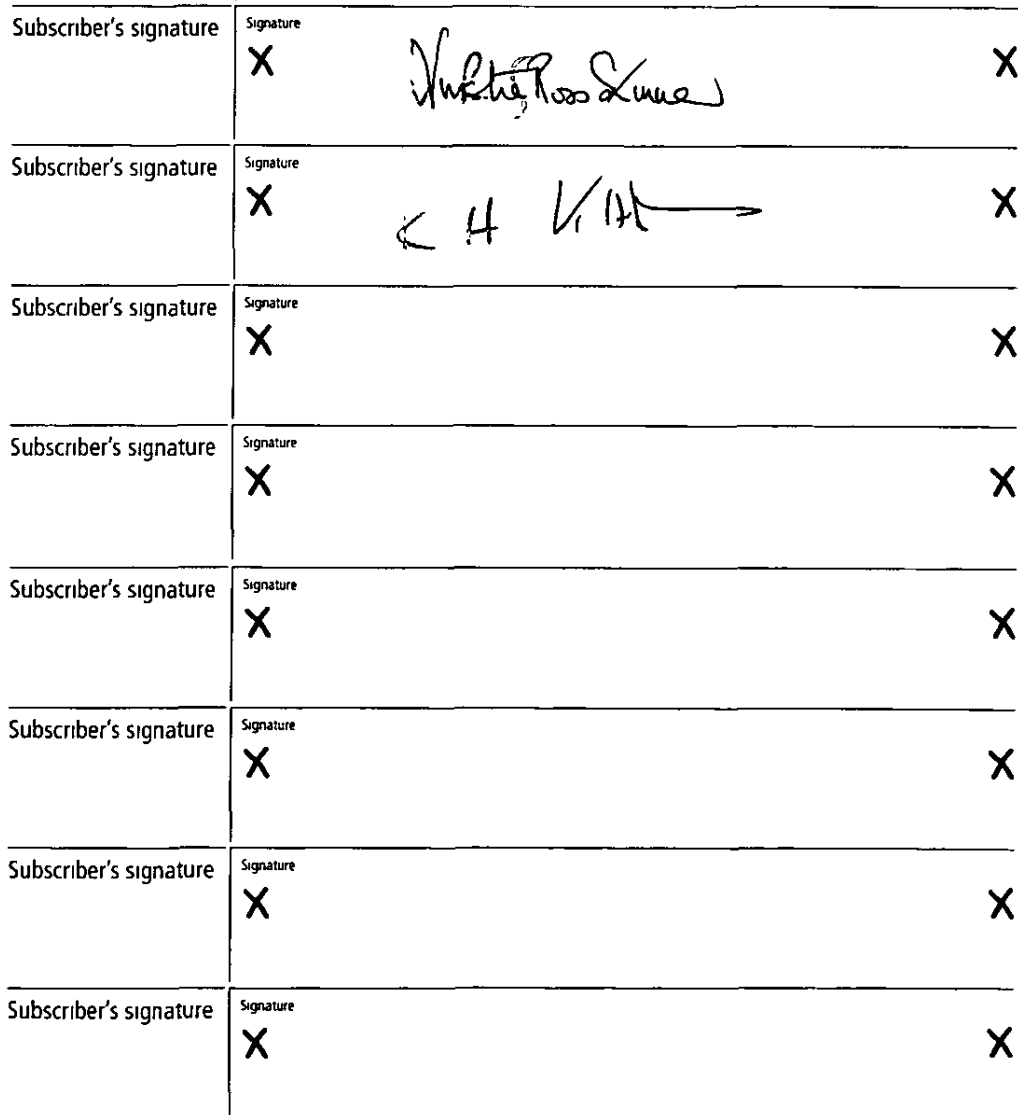 Subscriber's signature Signature
X Ross X
Subscriber's signature Signature
X K H X
Subscriber's signature Signature
X X
Subscriber's signature Signature
X X
Subscriber's signature Signature
X X
Subscriber's signature Signature
X X
Subscriber's signature Signature
X X
Subscriber's signature Signature
X X